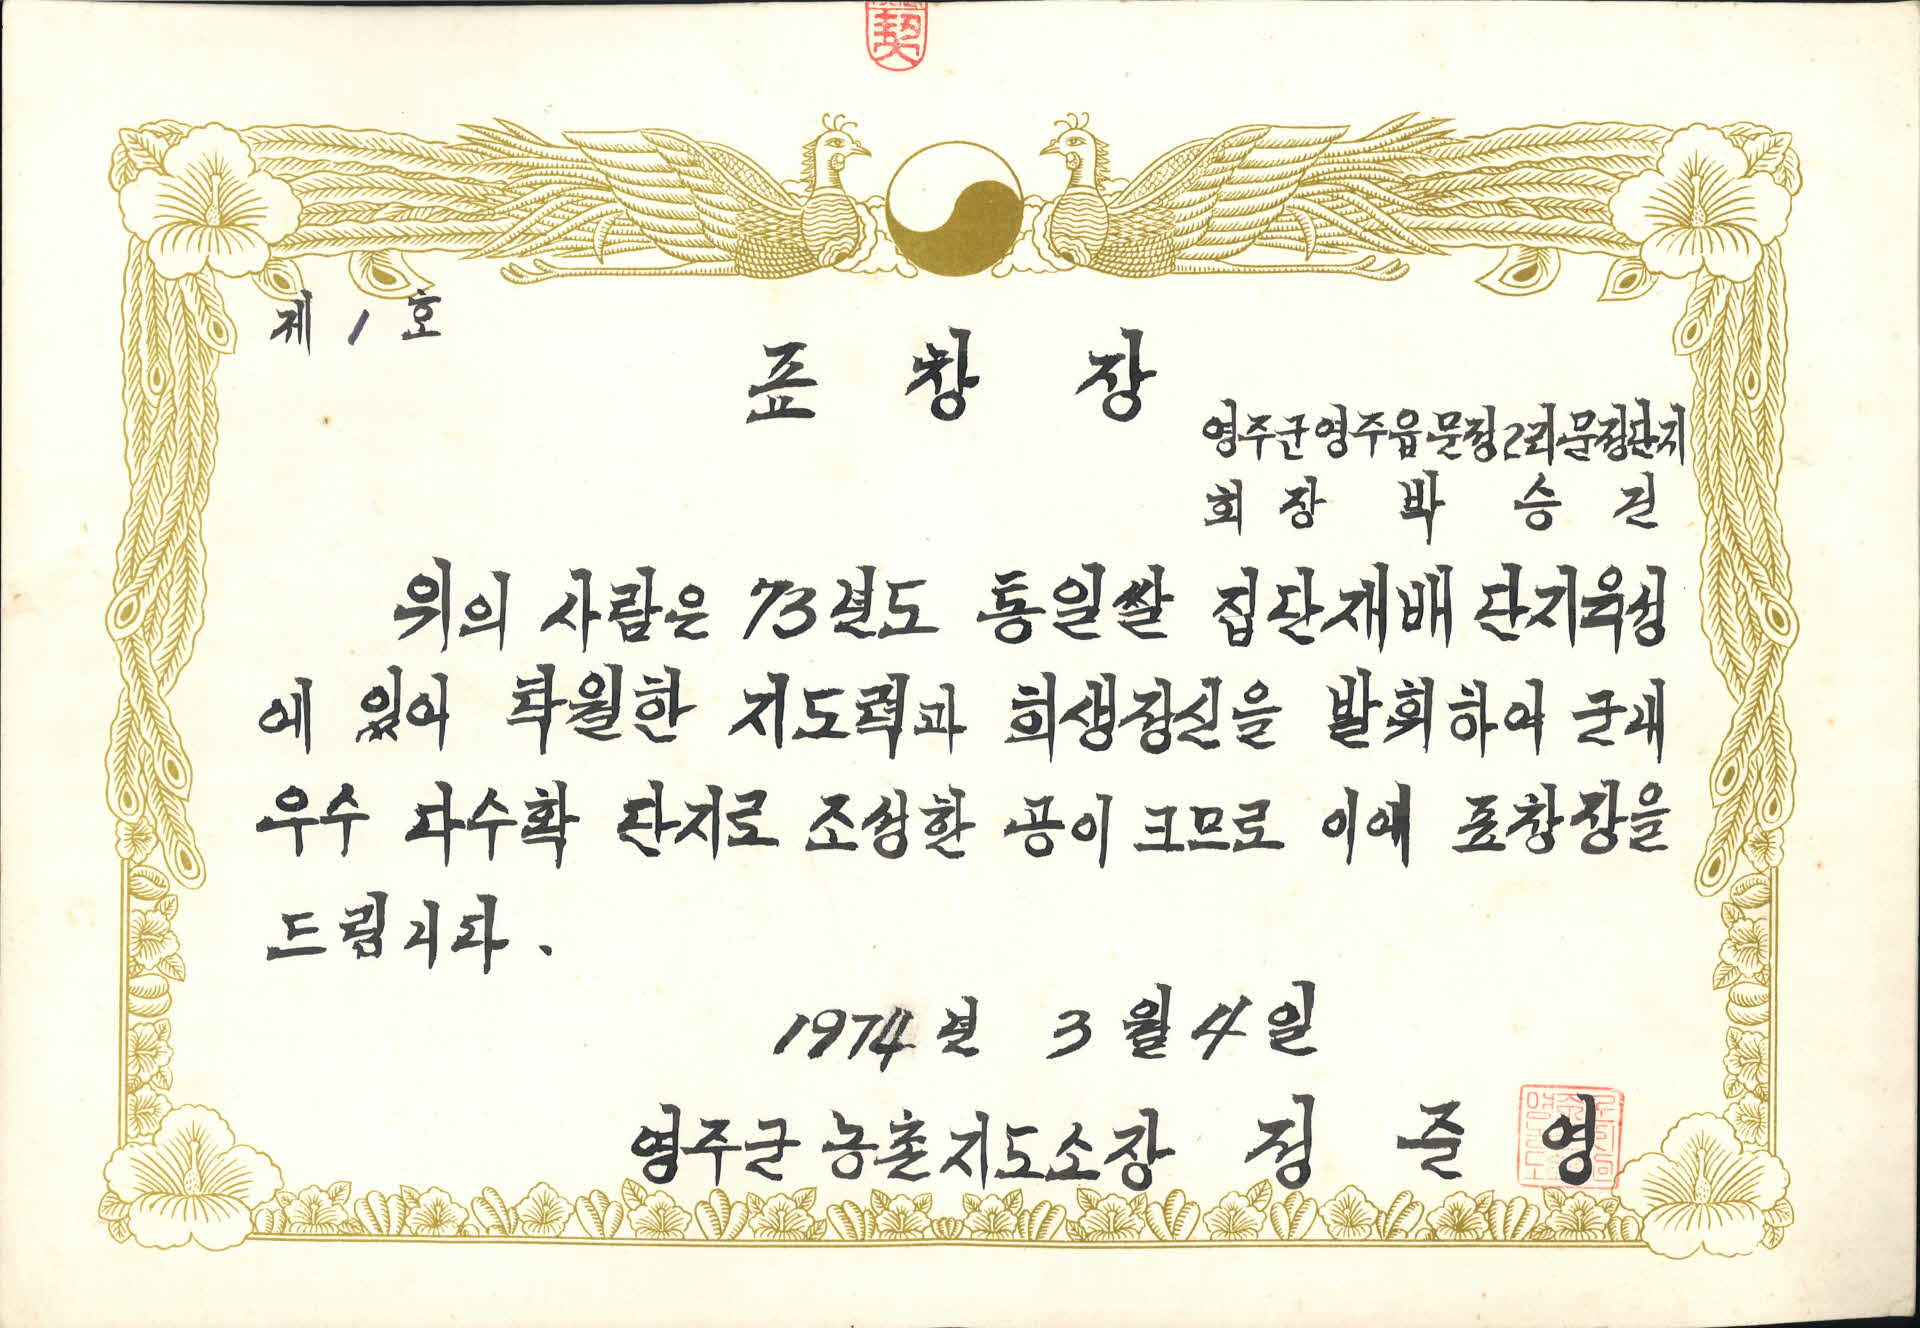 契
제 1 호
표 창 장
영주군영주읍문정2리문정단지
회 장 박 승 진
위의 사람은 73년도 통일쌀 집단재배 단지육성
에 있어 탁월한 지도력과 희생정신을 발휘하여 군내
우수 다수확 단지로 조성한 공이 크므로 이에 표창장을
드립니다.
1974년 3월 4일
영주군 농촌지도소장 정 준 영